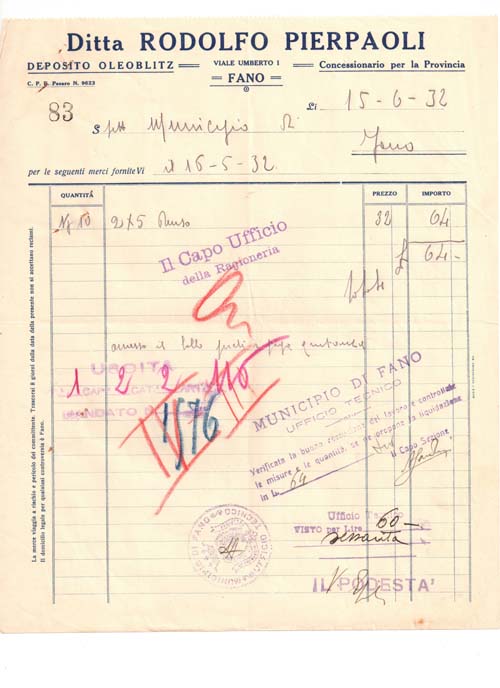 Ditta RODOLFO PIERPAOLI
DEPOSITO OLEOBLITZ
VIALE UMBERTO 1
FANO
Concessionario per la Provincia
C. P. E. Pesaro N. 9623
83
Li 15-6-32
Spett Municipio di
Fano
per le seguenti merci forniteVi il 16-5-32
QUANTITÁ
PREZZO
IMPORTO
2x5
32
64
£ 64-
Il Capo Ufficio
della Ragioneria
USCITA
1 2 2 110
MANDATO
1576
MUNICIPIO DI FANO
UFFICIO TECNICO
Verificata la buona esecuzione del lavoro e controllate
le misure e le quantità, se ne propone la liquidazione
in L. 64
Il Capo Sezione
Ufficio
VISTO per Lire 60-
sessanta
IL PODESTA'
La merce viaggia a rischio e pericolo del committente. Trascorsi 8 giorni dalla data della presente non si accettano reclami.
Il domicilio legale per qualsiasi controversia è Fano.